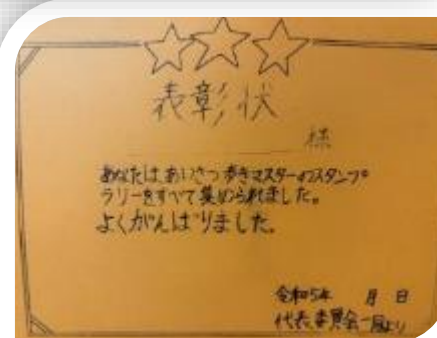 表彰状
様
あなたはあいさつ歩きマスターのスタンプ
ラリーをすべて集められました。
よくがんばりました。
令和5年 月 日
代表委員会一同より